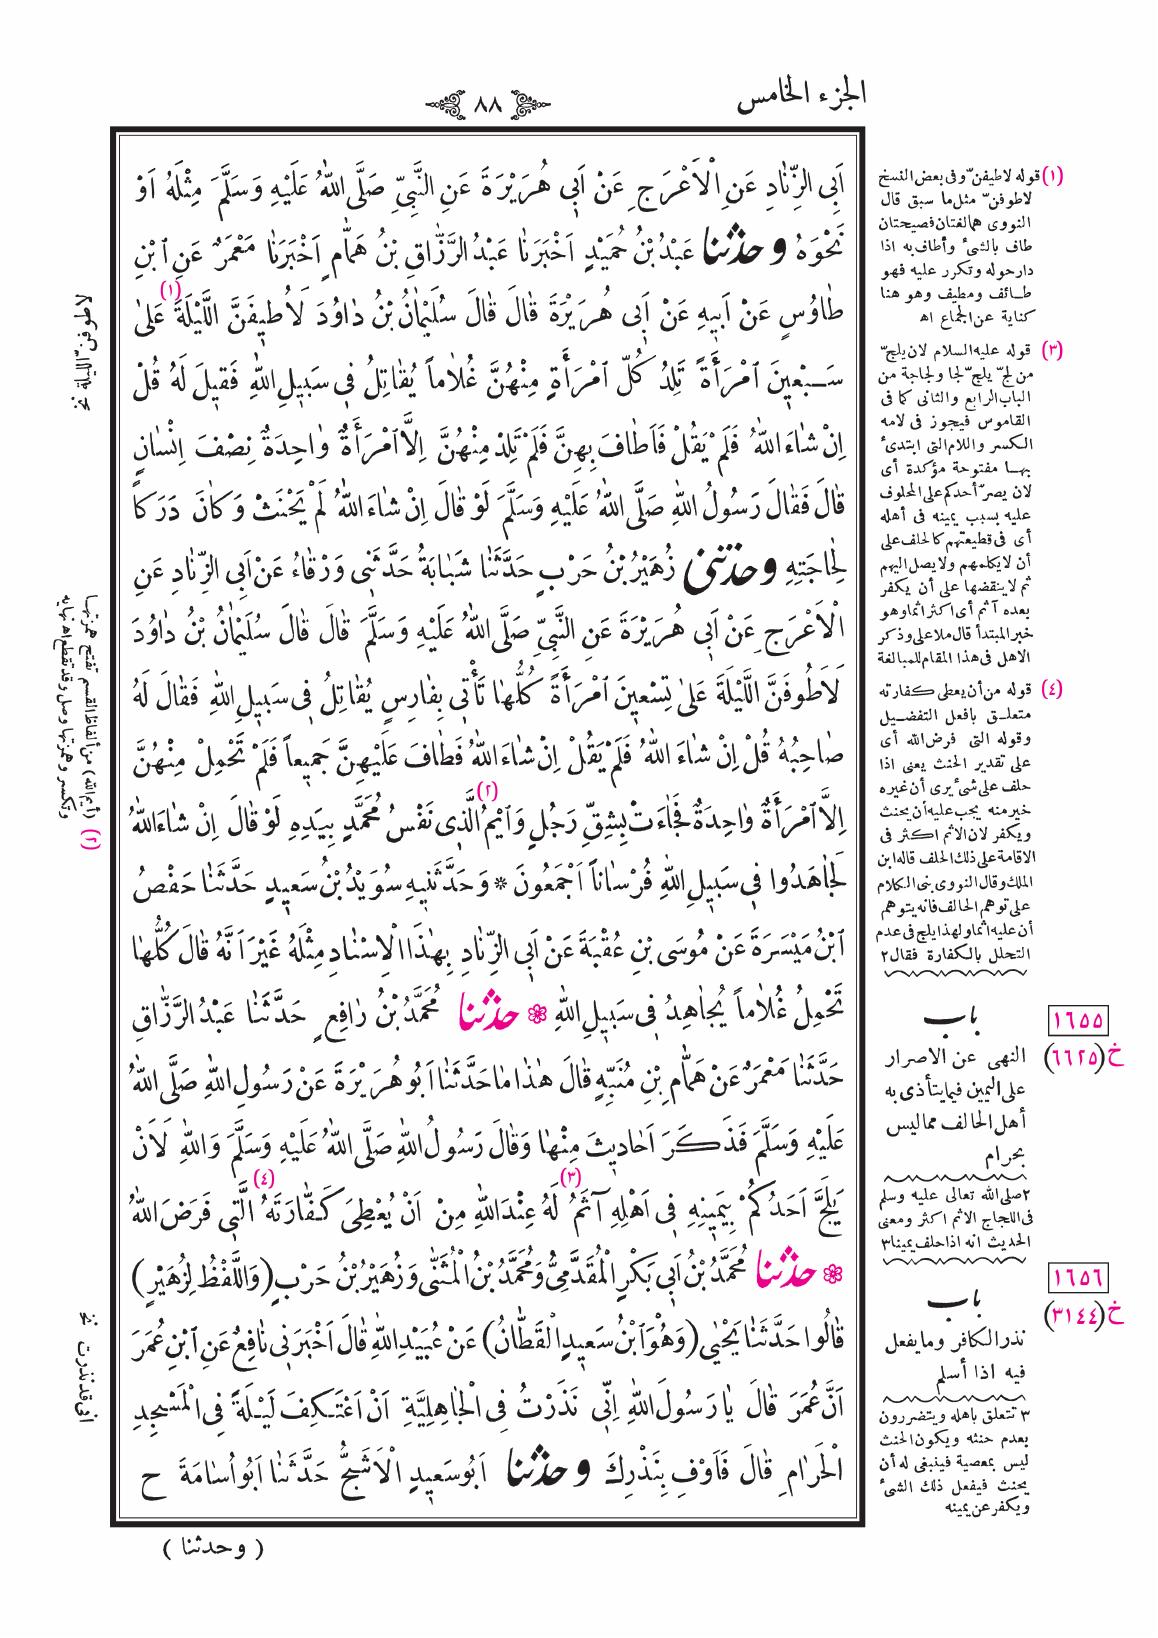 الجزء الخامس
٨٨
اَبِى الزِّنَادِ عَنِ الْاَعْرَجِ عَنْ اَبِى هُرَيْرَةَ عَنِ النَّبِىِّ صَلَّى اللّٰهُ عَلَيْهِ وَسَلَّمَ مِثْلَهُ اَوْ
نَحْوَهُ وحدثنا عَبْدُ بْنُ حُمَيْدٍ اَخْبَرَنَا عَبْدُ الرَّزَّاقِ بْنُ هَمَّامٍ اَخْبَرَنَا مَعْمَرٌ عَنِ ابْنِ
طَاوُسٍ عَنْ اَبِيهِ عَنْ اَبِى هُرَيْرَةَ قَالَ قَالَ سُلَيْمَانُ بْنُ دَاوُدَ لَاُطِيفَنَّ (١) اللَّيْلَةَ عَلىٰ
سَبْعِينَ امْرَأَةً تَلِدُ كُلُّ امْرَأَةٍ مِنْهُنَّ غُلَاماً يُقَاتِلُ فِى سَبِيلِ اللّٰهِ فَقِيلَ لَهُ قُلْ
اِنْ شَاءَ اللّٰهُ فَلَمْ يَقُلْ فَاَطَافَ بِهِنَّ فَلَمْ تَلِدْ مِنْهُنَّ اِلَّا امْرَأَةٌ وَاحِدَةٌ نِصْفَ اِنْسَانٍ
قَالَ فَقَالَ رَسُولُ اللّٰهِ صَلَّى اللّٰهُ عَلَيْهِ وَسَلَّمَ لَوْ قَالَ اِنْ شَاءَ اللّٰهُ لَمْ يَحْنَثْ وَكَانَ دَرَكاً
لِحَاجَتِهِ وحدثنى زُهَيْرُ بْنُ حَرْبٍ حَدَّثَنَا شَبَابَةُ حَدَّثَنِى وَرْقَاءُ عَنْ اَبِى الزِّنَادِ عَنِ
الْاَعْرَجِ عَنْ اَبِى هُرَيْرَةَ عَنِ النَّبِىِّ صَلَّى اللّٰهُ عَلَيْهِ وَسَلَّمَ قَالَ قَالَ سُلَيْمَانُ بْنُ دَاوُدَ
لَاَطُوفَنَّ اللَّيْلَةَ عَلىٰ تِسْعِينَ امْرَأَةً كُلُّهَا تَأْتِى بِفَارِسٍ يُقَاتِلُ فِى سَبِيلِ اللّٰهِ فَقَالَ لَهُ
صَاحِبُهُ قُلْ اِنْ شَاءَ اللّٰهُ فَلَمْ يَقُلْ اِنْ شَاءَ اللّٰهُ فَطَافَ عَلَيْهِنَّ جَمِيعاً فَلَمْ تَحْمِلْ مِنْهُنَّ
اِلَّا امْرَأَةٌ وَاحِدَةٌ فَجَاءَتْ بِشِقِّ رَجُلٍ وَاَيْمُ (٢) الَّذِى نَفْسُ مُحَمَّدٍ بِيَدِهِ لَوْ قَالَ اِنْ شَاءَ اللّٰهُ
لَجَاهَدُوا فِى سَبِيلِ اللّٰهِ فُرْسَاناً اَجْمَعُونَ * وَحَدَّثَنِيهِ سُوَيْدُ بْنُ سَعِيدٍ حَدَّثَنَا حَفْصُ
ابْنُ مَيْسَرَةَ عَنْ مُوسَى بْنِ عُقْبَةَ عَنْ اَبِى الزِّنَادِ بِهٰذَا الْاِسْنَادِ مِثْلَهُ غَيْرَ اَنَّهُ قَالَ كُلُّهَا
تَحْمِلُ غُلَاماً يُجَاهِدُ فِى سَبِيلِ اللّٰهِ ❁ حدثنا مُحَمَّدُ بْنُ رَافِعٍ حَدَّثَنَا عَبْدُ الرَّزَّاقِ
حَدَّثَنَا مَعْمَرٌ عَنْ هَمَّامِ بْنِ مُنَبِّهٍ قَالَ هٰذَا مَا حَدَّثَنَا اَبُو هُرَيْرَةَ عَنْ رَسُولِ اللّٰهِ صَلَّى اللّٰهُ
عَلَيْهِ وَسَلَّمَ فَذَكَرَ اَحَادِيثَ مِنْهَا وَقَالَ رَسُولُ اللّٰهِ صَلَّى اللّٰهُ عَلَيْهِ وَسَلَّمَ وَاللّٰهِ لَاَنْ
يَلَجَّ اَحَدُكُمْ بِيَمِينِهِ فِى اَهْلِهِ آثَمُ (٣) لَهُ عِنْدَ اللّٰهِ مِنْ اَنْ يُعْطِىَ كَفَّارَتَهُ (٤) الَّتِى فَرَضَ اللّٰهُ
❁ حدثنا مُحَمَّدُ بْنُ اَبِى بَكْرٍ الْمُقَدَّمِىُّ وَمُحَمَّدُ بْنُ الْمُثَنّٰى وَزُهَيْرُ بْنُ حَرْبٍ (وَاللَّفْظُ لِزُهَيْرٍ)
قَالُوا حَدَّثَنَا يَحْيٰى (وَهُوَ ابْنُ سَعِيدٍ الْقَطَّانُ) عَنْ عُبَيْدِ اللّٰهِ قَالَ اَخْبَرَنِى نَافِعٌ عَنِ ابْنِ عُمَرَ
اَنَّ عُمَرَ قَالَ يَا رَسُولَ اللّٰهِ اِنِّى نَذَرْتُ فِى الْجَاهِلِيَّةِ اَنْ اَعْتَكِفَ لَيْلَةً فِى الْمَسْجِدِ
الْحَرَامِ قَالَ فَاَوْفِ بِنَذْرِكَ وحدثنا اَبُو سَعِيدٍ الْاَشَجُّ حَدَّثَنَا اَبُو اُسَامَةَ ح
( وحدثنا )
(١) قوله لاطيفنّ وفى بعض النسخ
لاطوفنّ مثل ما سبق قال
النووى هما لغتان فصيحتان
طاف بالشئ وأطاف به اذا
دار حوله وتكرر عليه فهو
طائف ومطيف وهو هنا
كناية عن الجماع اه
(٣) قوله عليه السلام لان يلجّ
من لجّ يلجّ لجا ولجاجة من
الباب الرابع والثانى كما فى
القاموس فيجوز فى لامه
الكسر واللام التى ابتدئ
بها مفتوحة مؤكدة أى
لان يصرّ أحدكم على المحلوف
عليه بسبب يمينه فى أهله
أى فى قطيعتهم كالحلف على
أن لا يكلمهم ولا يصل اليهم
ثم لا ينقضها على أن يكفر
بعده آثم أى اكثر اثما وهو
خبر المبتدأ قال ملا على وذكر
الاهل فى هذا المقام للمبالغة
(٤) قوله من أن يعطى كفارته
متعلق بافعل التفضيل
وقوله التى فرض الله أى
على تقدير الحنث يعنى اذا
حلف على شئ يرى أن غيره
خير منه يجب عليه أن يحنث
ويكفر لان الاثم اكثر فى
الاقامة على ذلك الحلف قاله ابن
الملك وقال النووى بنى الكلام
على توهم الحالف فانه يتوهم
أن عليه اثما ولهذا يلج فى عدم
التحلل بالكفارة فقال ٢
١٦٥٥
باب
خ (٦٦٢٥)
النهى عن الاصرار
على اليمين فيما يتأذى به
أهل الحالف مما ليس
بحرام
٢ صلى الله تعالى عليه وسلم
فى اللجاج الاثم اكثر ومعنى
الحديث انه اذا حلف يمينا ٣
١٦٥٦
باب
خ (٣١٤٤)
نذر الكافر وما يفعل
فيه اذا أسلم
٣ تتعلق باهله ويتضررون
بعدم حنثه ويكون الحنث
ليس بمعصية فينبغى له أن
يحنث فيفعل ذلك الشئ
ويكفر عن يمينه
لاطوفنّ الليلة نخ
(٢) (أيم الله) من ألفاظ القسم تفتح همزتها
وتكسر وهمزتها وصل وقد تقطع اه نهايه
انى قد نذرت نخ